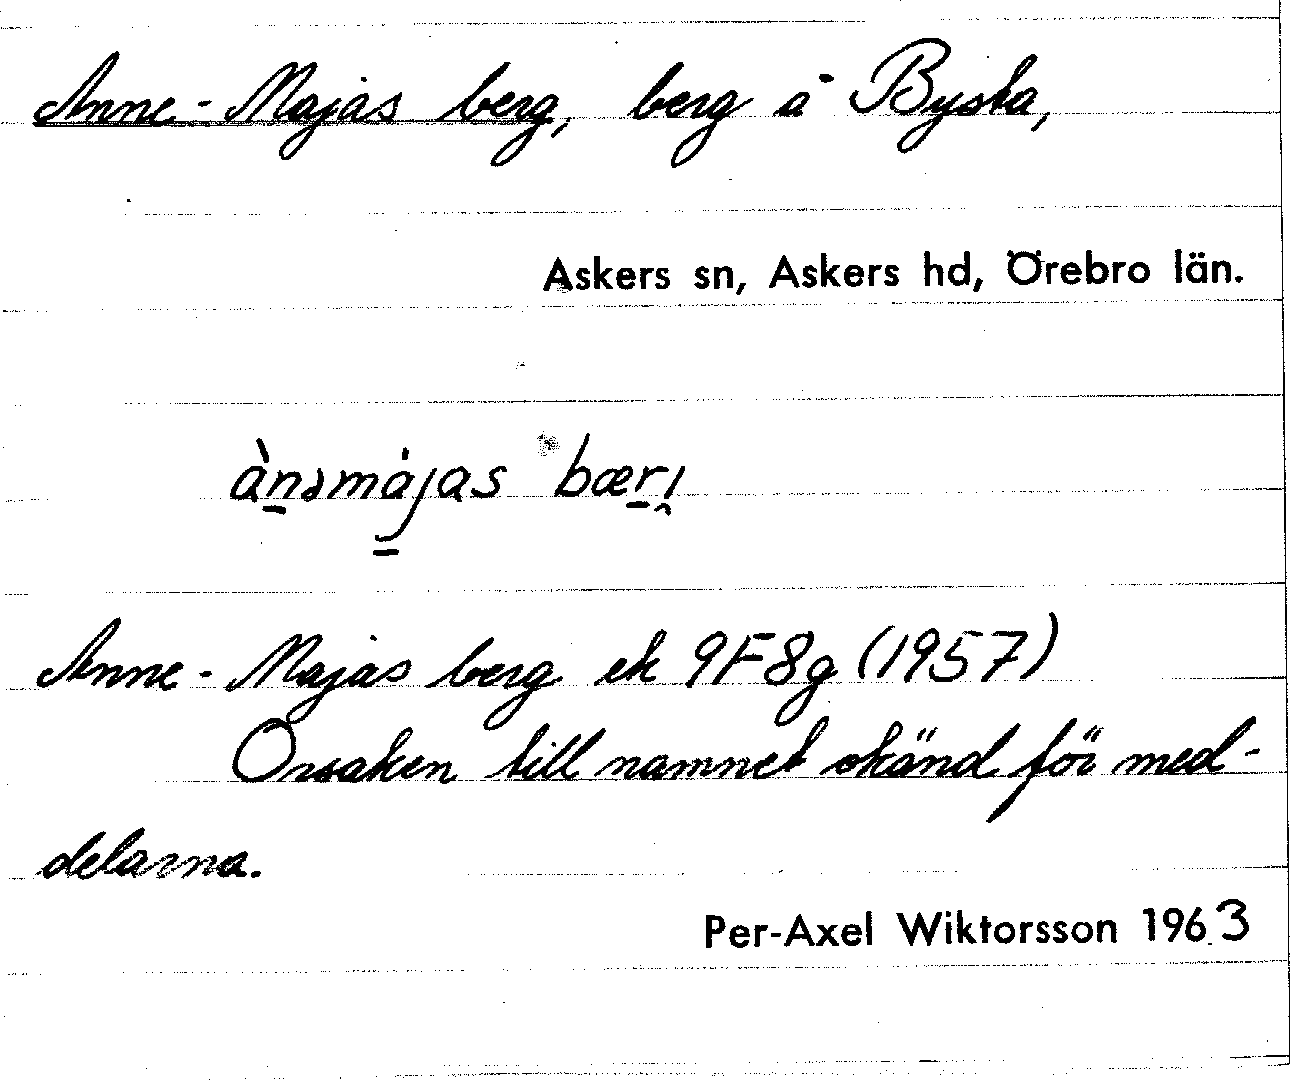 Anne-Majas berg, berg å Bysta,
Askers sn, Askers hd, Örebro län.
ànəmájas bærı̯
Anne-Majas berg ek 9F8g (1957)
Orsaken till namnet okänd för med-
delarna.
Per-Axel Wiktorsson 1963